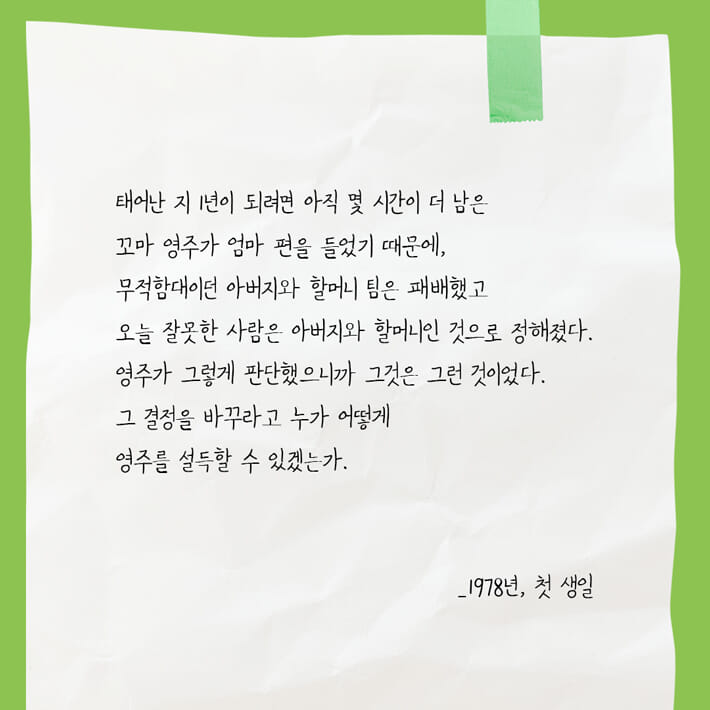 태어난 지 1년이 되려면 아직 몇 시간이 더 남은
꼬마 영주가 엄마 편을 들었기 때문에,
무적함대이던 아버지와 할머니 팀은 패배했고
오늘 잘못한 사람은 아버지와 할머니인 것으로 정해졌다.
영주가 그렇게 판단했으니까 그것은 그런 것이었다.
그 결정을 바꾸라고 누가 어떻게
영주를 설득할 수 있겠는가.
_1978년, 첫 생일